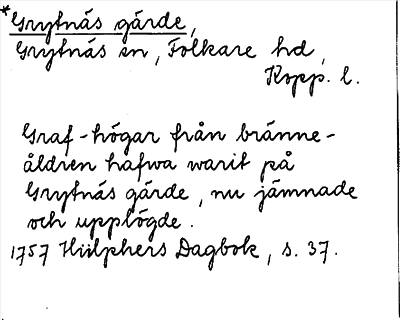 *Grytnäs gärde,
Grytnäs sn, Folkare hd,
Kopp. l.
Graf-högar från bränne-
åldren hafwa warit på
Grytnäs gärde, nu jämnade
och upplögde.
1757 Hülphers Dagbok, s. 37.